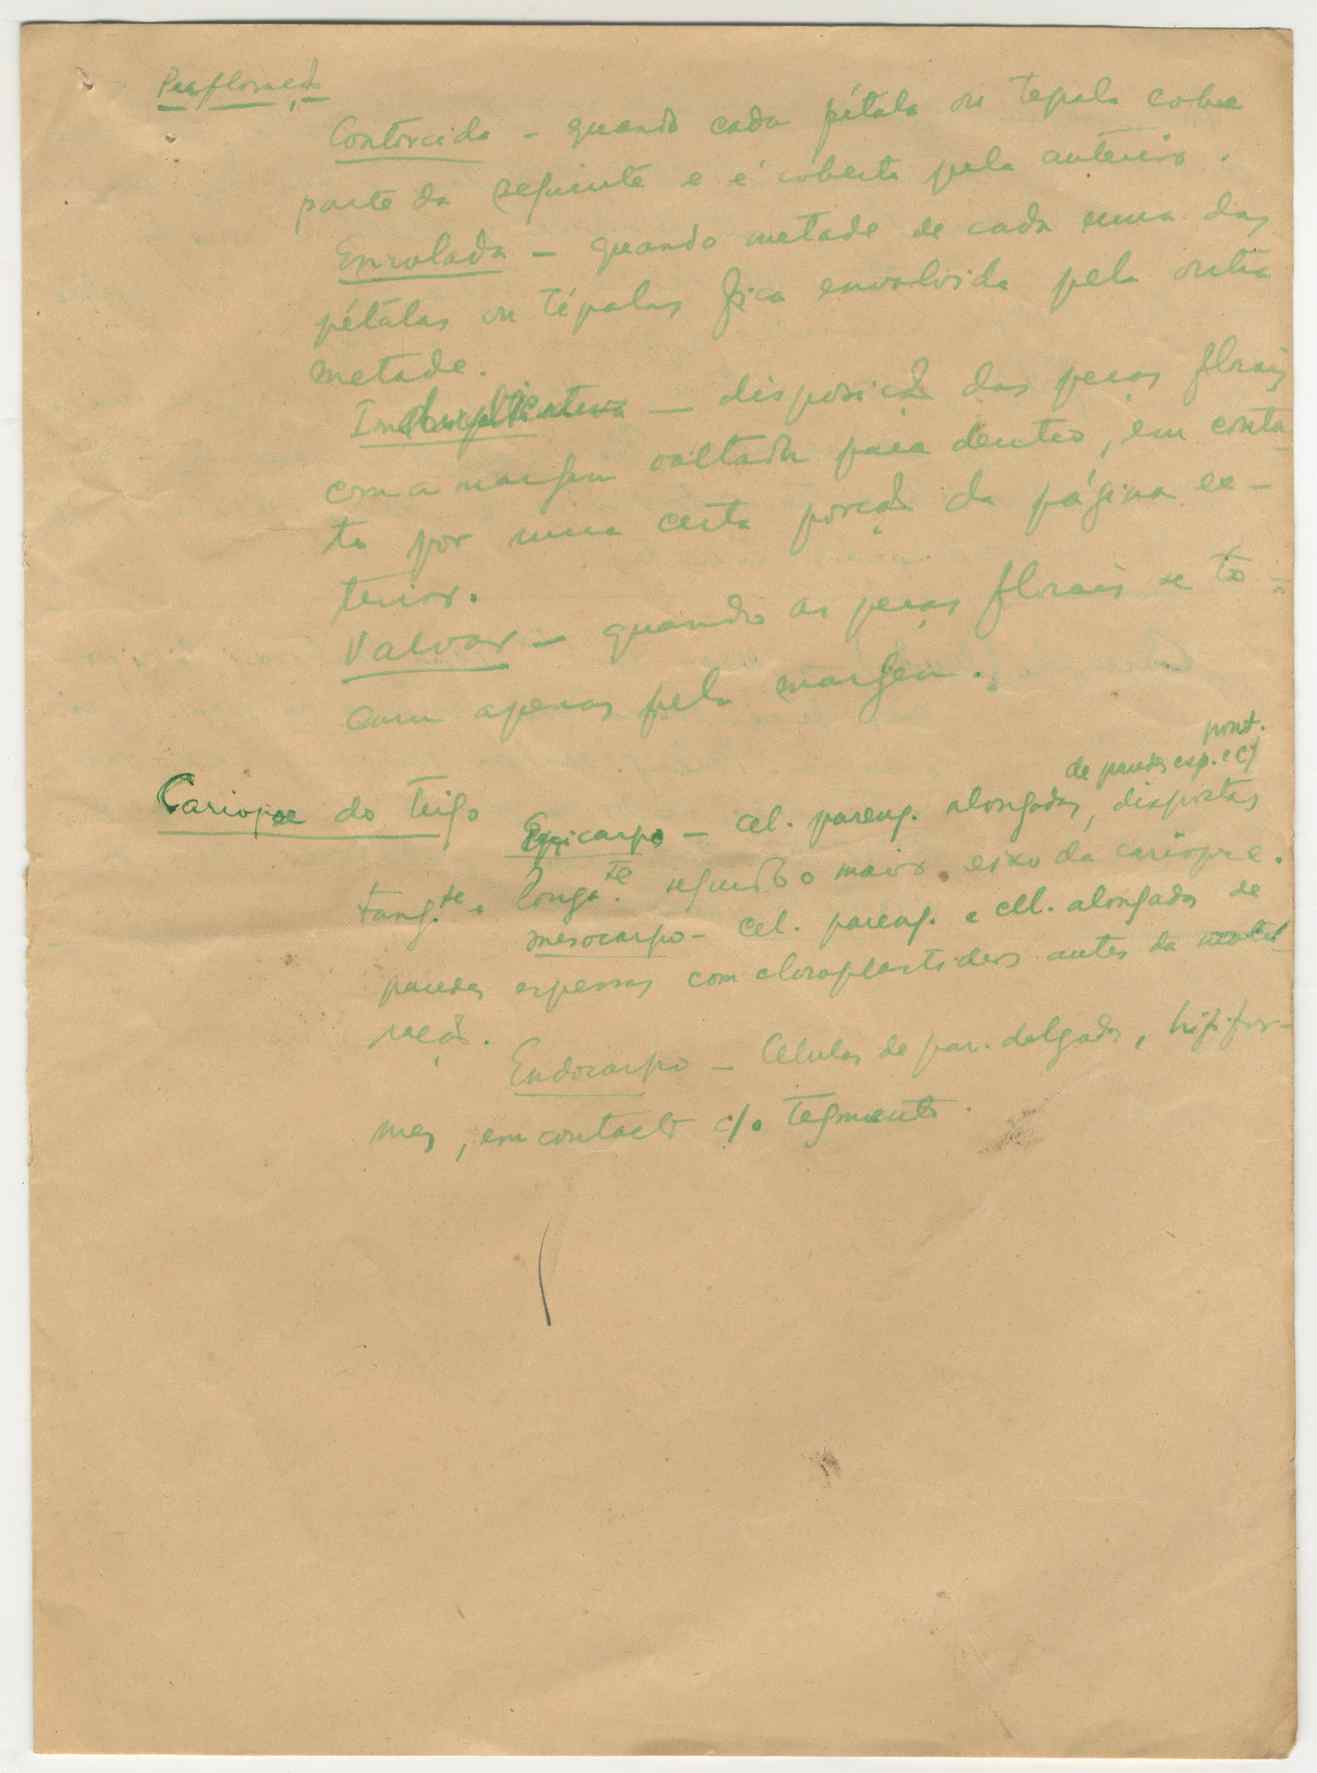 Prefloração
Contorcida - quando cada pétala ou tépala cobre
parte da seguinte e é coberta pela anterior.
Enrolada - quando metade de cada uma das
pétalas ou tépalas fica envolvida pela outra
metade.
Induplicativa - disposição das peças florais
com a margem voltada para dentro, em conta-
to por uma certa porção da página ex-
terior.
Valvar - quando as peças florais se to-
cam apenas pela margem.
pont.
de paredes esp. e c/
Cariopse do trigo Epicarpo - cel. pareng. alongadas, dispostas
tang.te e longa.te segundo o maior eixo da cariopse.
mesocarpo - cel. pareng. e cel. alongadas de
paredes espessas com cloroplastideos antes da
ração.
Endocarpo - Células de par. delgada, hififor-
mes, em contacto c/o tegmento.